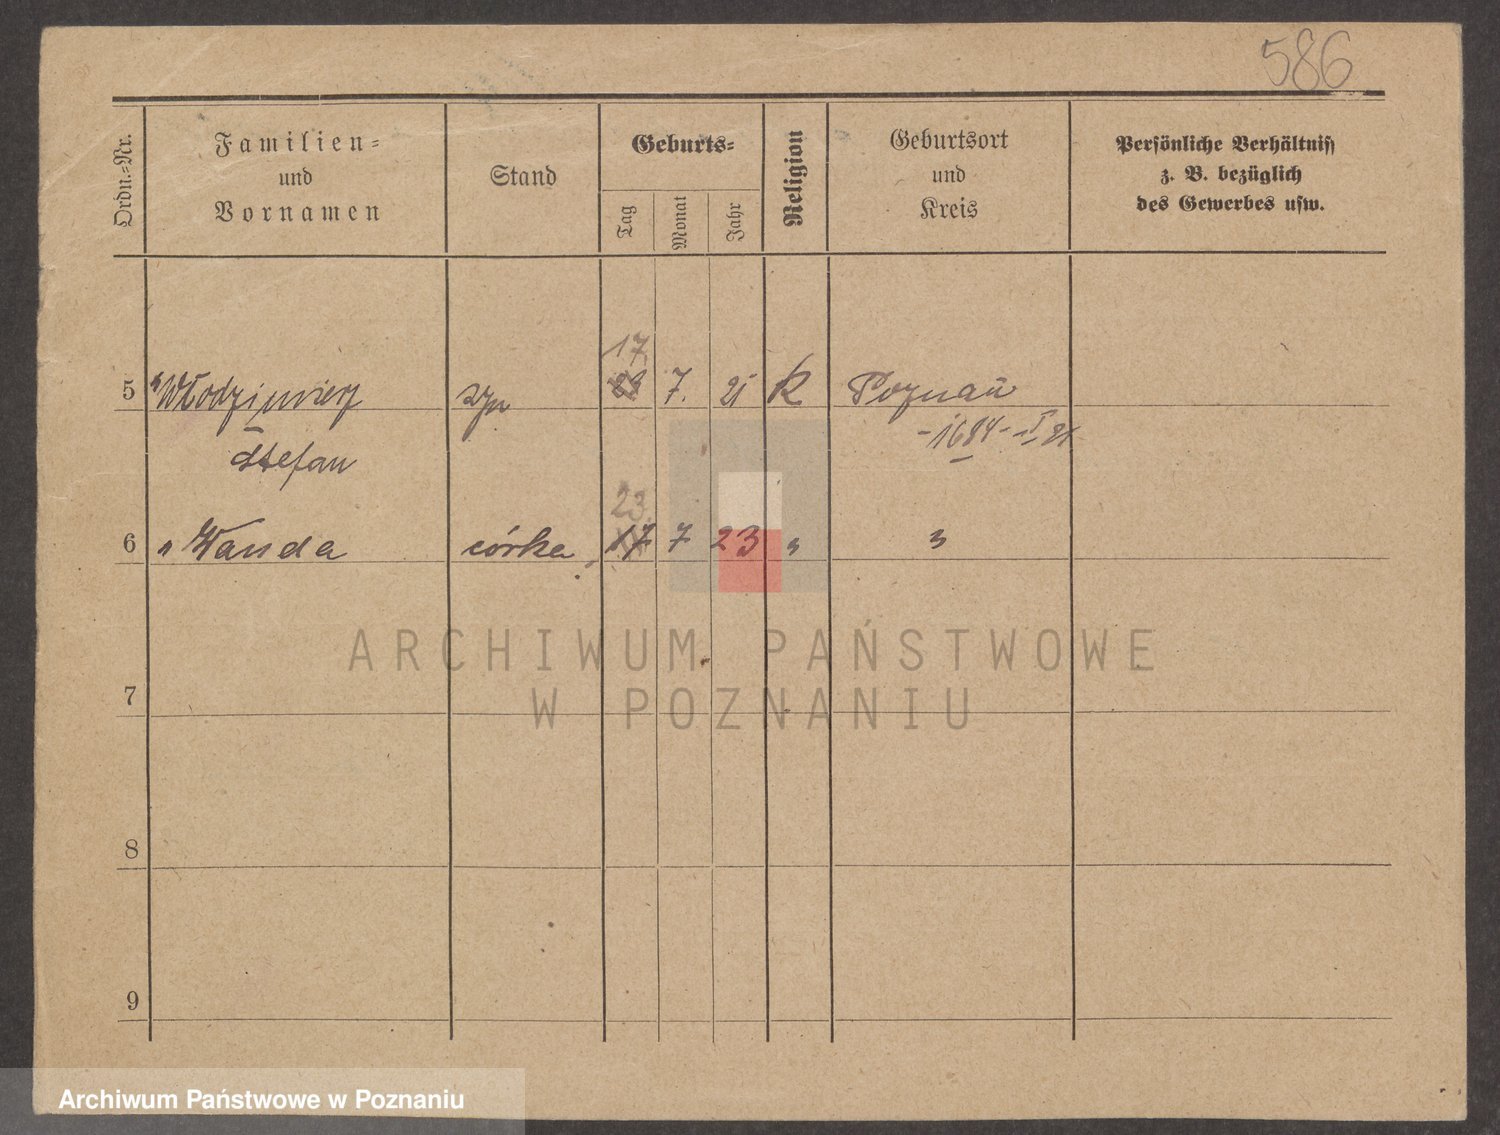 586
Ordn.-Nr.
Familien-
und
Vornamen
Stand
Geburts-
Tag
Monat
Jahr
Religion
Geburtsort
und
Kreis
Persönliche Verhältniss
z. B. bezüglich
des Gewerbes usw.
17
5 "Włodzimierz syn 23 7. 21 K Poznań
Stefan
-1684-I 21
23.
6 " Wanda córka 17 7 23 " "
ARCHIWUM PAŃSTWOWE
W POZNANIU
7
8
9
Archiwum Państwowe w Poznaniu